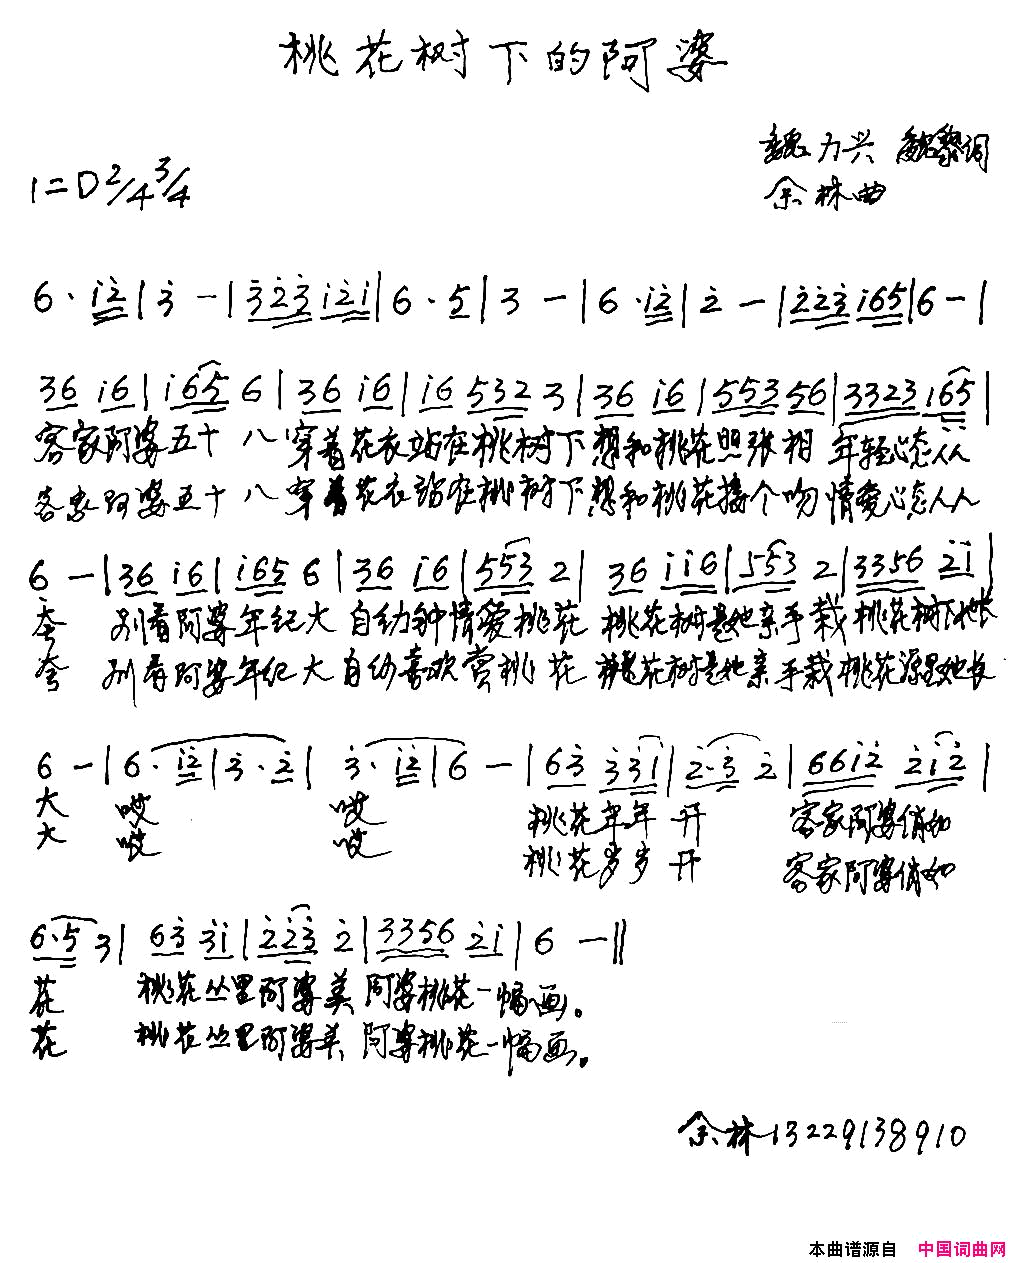 桃花树下的阿婆
魏力兴 魏黎词
1=D 2/4 3/4
余林曲
6· i̇2̇ | 3̇ — | 3̇2̇3̇ i̇2̇i̇ | 6·5 | 3 — | 6· i̇2̇ | 2̇ — | 2̇2̇3̇ i̇65 | 6 — |
36 i̇6 | i̇65 6 | 36 i̇6 | i̇6 532 3 | 36 i̇6 | 553 56 | 3323 i̇65 |
客家阿婆五十八穿着花衣站在桃树下想和桃花照张相 年轻心态人人
客家阿婆五十八穿着花衣站在桃树下想和桃花接个吻情爱心态人人
6 — | 36 i̇6 | i̇65 6 | 36 i̇6 | 553 2 | 36 i̇i̇6 | 553 2 | 3356 2̇i̇ |
夸 别看阿婆年纪大 自幼钟情爱桃花 桃花树是她亲手栽 桃花树下她长
夸 别看阿婆年纪大 自幼喜欢赏桃花 桃花树是她亲手栽 桃花源里她长
6 — | 6· i̇2̇ | 3̇·2̇ | 3̇· i̇2̇ | 6 — | 63̇ 3̇3̇i̇ | 2̇·3̇ 2̇ | 66i̇2̇ 2̇i̇2̇ |
大 哎 哎 桃花年年开 客家阿婆俏如
大 哎 哎 桃花岁岁开 客家阿婆俏如
6·5 3 | 63̇ 3̇i̇ | 2̇2̇3̇ 2̇ | 3356 2̇i̇ | 6 — ‖
花 桃花丛里阿婆美 阿婆桃花一幅画。
花 桃花丛里阿婆美 阿婆桃花一幅画。
余林13229138910
本曲谱源自 中国词曲网